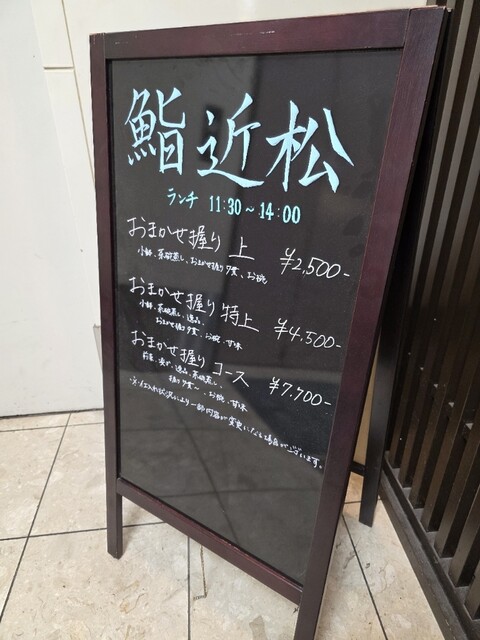 鮨近松
ランチ 11:30～14:00
おまかせ握り 上 ¥2,500-
小鉢、茶碗蒸し、おまかせ握り7貫、お椀
おまかせ握り 特上 ¥4,500-
小鉢、茶碗蒸し、逸品、
おまかせ握り 貫、お椀、甘味
おまかせ握り コース ¥7,700-
前菜、逸品、茶碗蒸し、
握り7貫～、お椀、甘味
※仕入れ状況により一部内容が変更になる場合がございます。